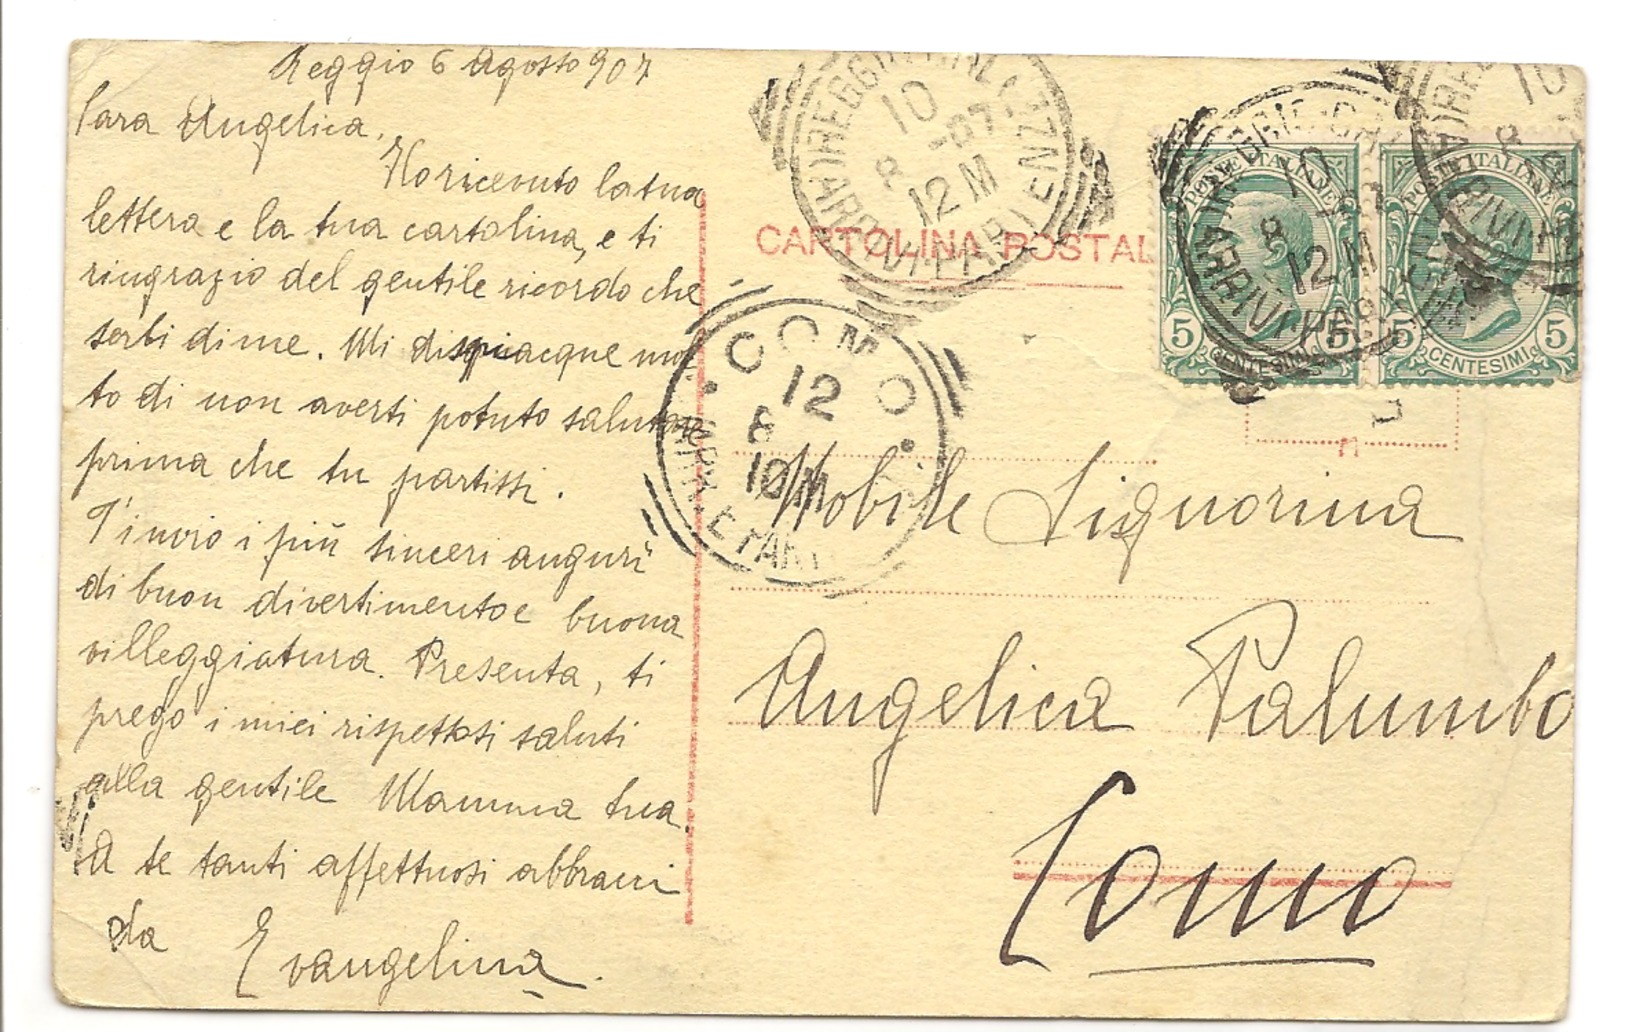 Reggio 6 Agosto 907
Cara Angelica.
Ho ricevuto la tua
lettera e la tua cartolina, e ti
ringrazio del gentile ricordo che
serbi di me. Mi dispiacque mol
to di non averti potuto salutare
prima che tu partissi.
T'invio i più sinceri augurî
di buon divertimento e buona
villeggiatura. Presenta, ti
prego i miei rispettosi saluti
alla gentile Mamma tua.
A te tanti affettuosi abbracci
da Evangelina.
CARTOLINA POSTAL
REGGIO
10
8 -07
12 M
ARRIVI PARTENZE
POSTE ITALIANE
POSTE ITALIANE
10
8
12 M
ARRIVI PAR
5 CENTESIMI 5
5 CENTESIMI 5
10
8
COMO
12
8
10 M
Nobile Signorina
Angelica Palumbo
Como